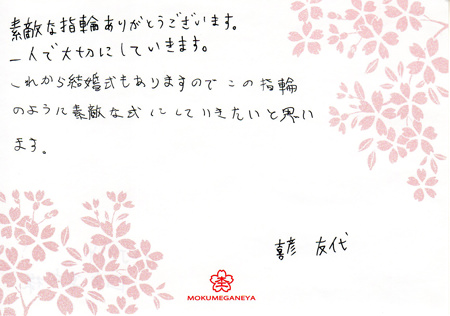 素敵な指輪ありがとうございます。
一人で大切にしていきます。
これから結婚式もありますのでこの指輪
のように素敵な式にしていきたいと思い
ます。
友代
MOKUMEGANEYA